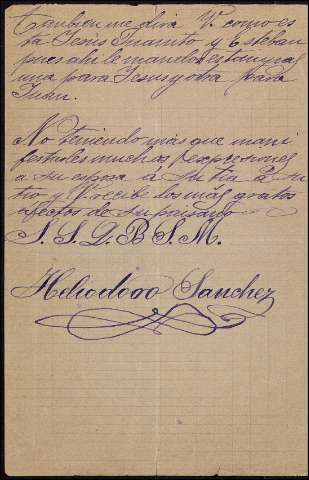 tambien me dira V. como es
ta Jesus Juanito y Esteban
pues ahi le mando estampas
una para Jesus y otra para
Juan.
No teniendo mas que mani
festarles muchas expresiones
a su esposa á su tia á su
tio y V. recibe los más gratos
afectos de su paisano
S. S. Q. B. S. M.
Heliodoro Sanchez